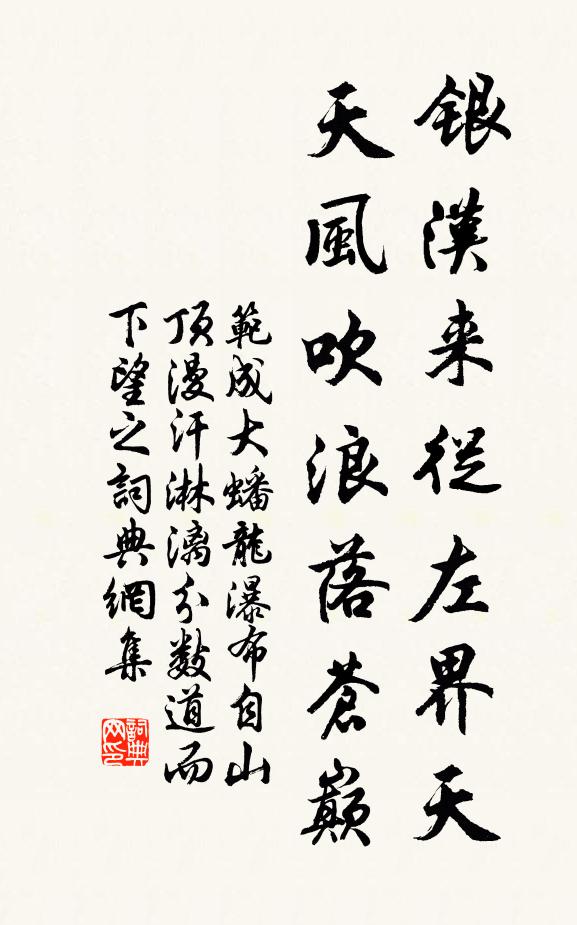 銀漢来從左界天
天風吹浪落蒼巔
範成大蟠龍瀑布自山
頂漫汗淋漓分數道而
下望之詞典網集
詞典
网印